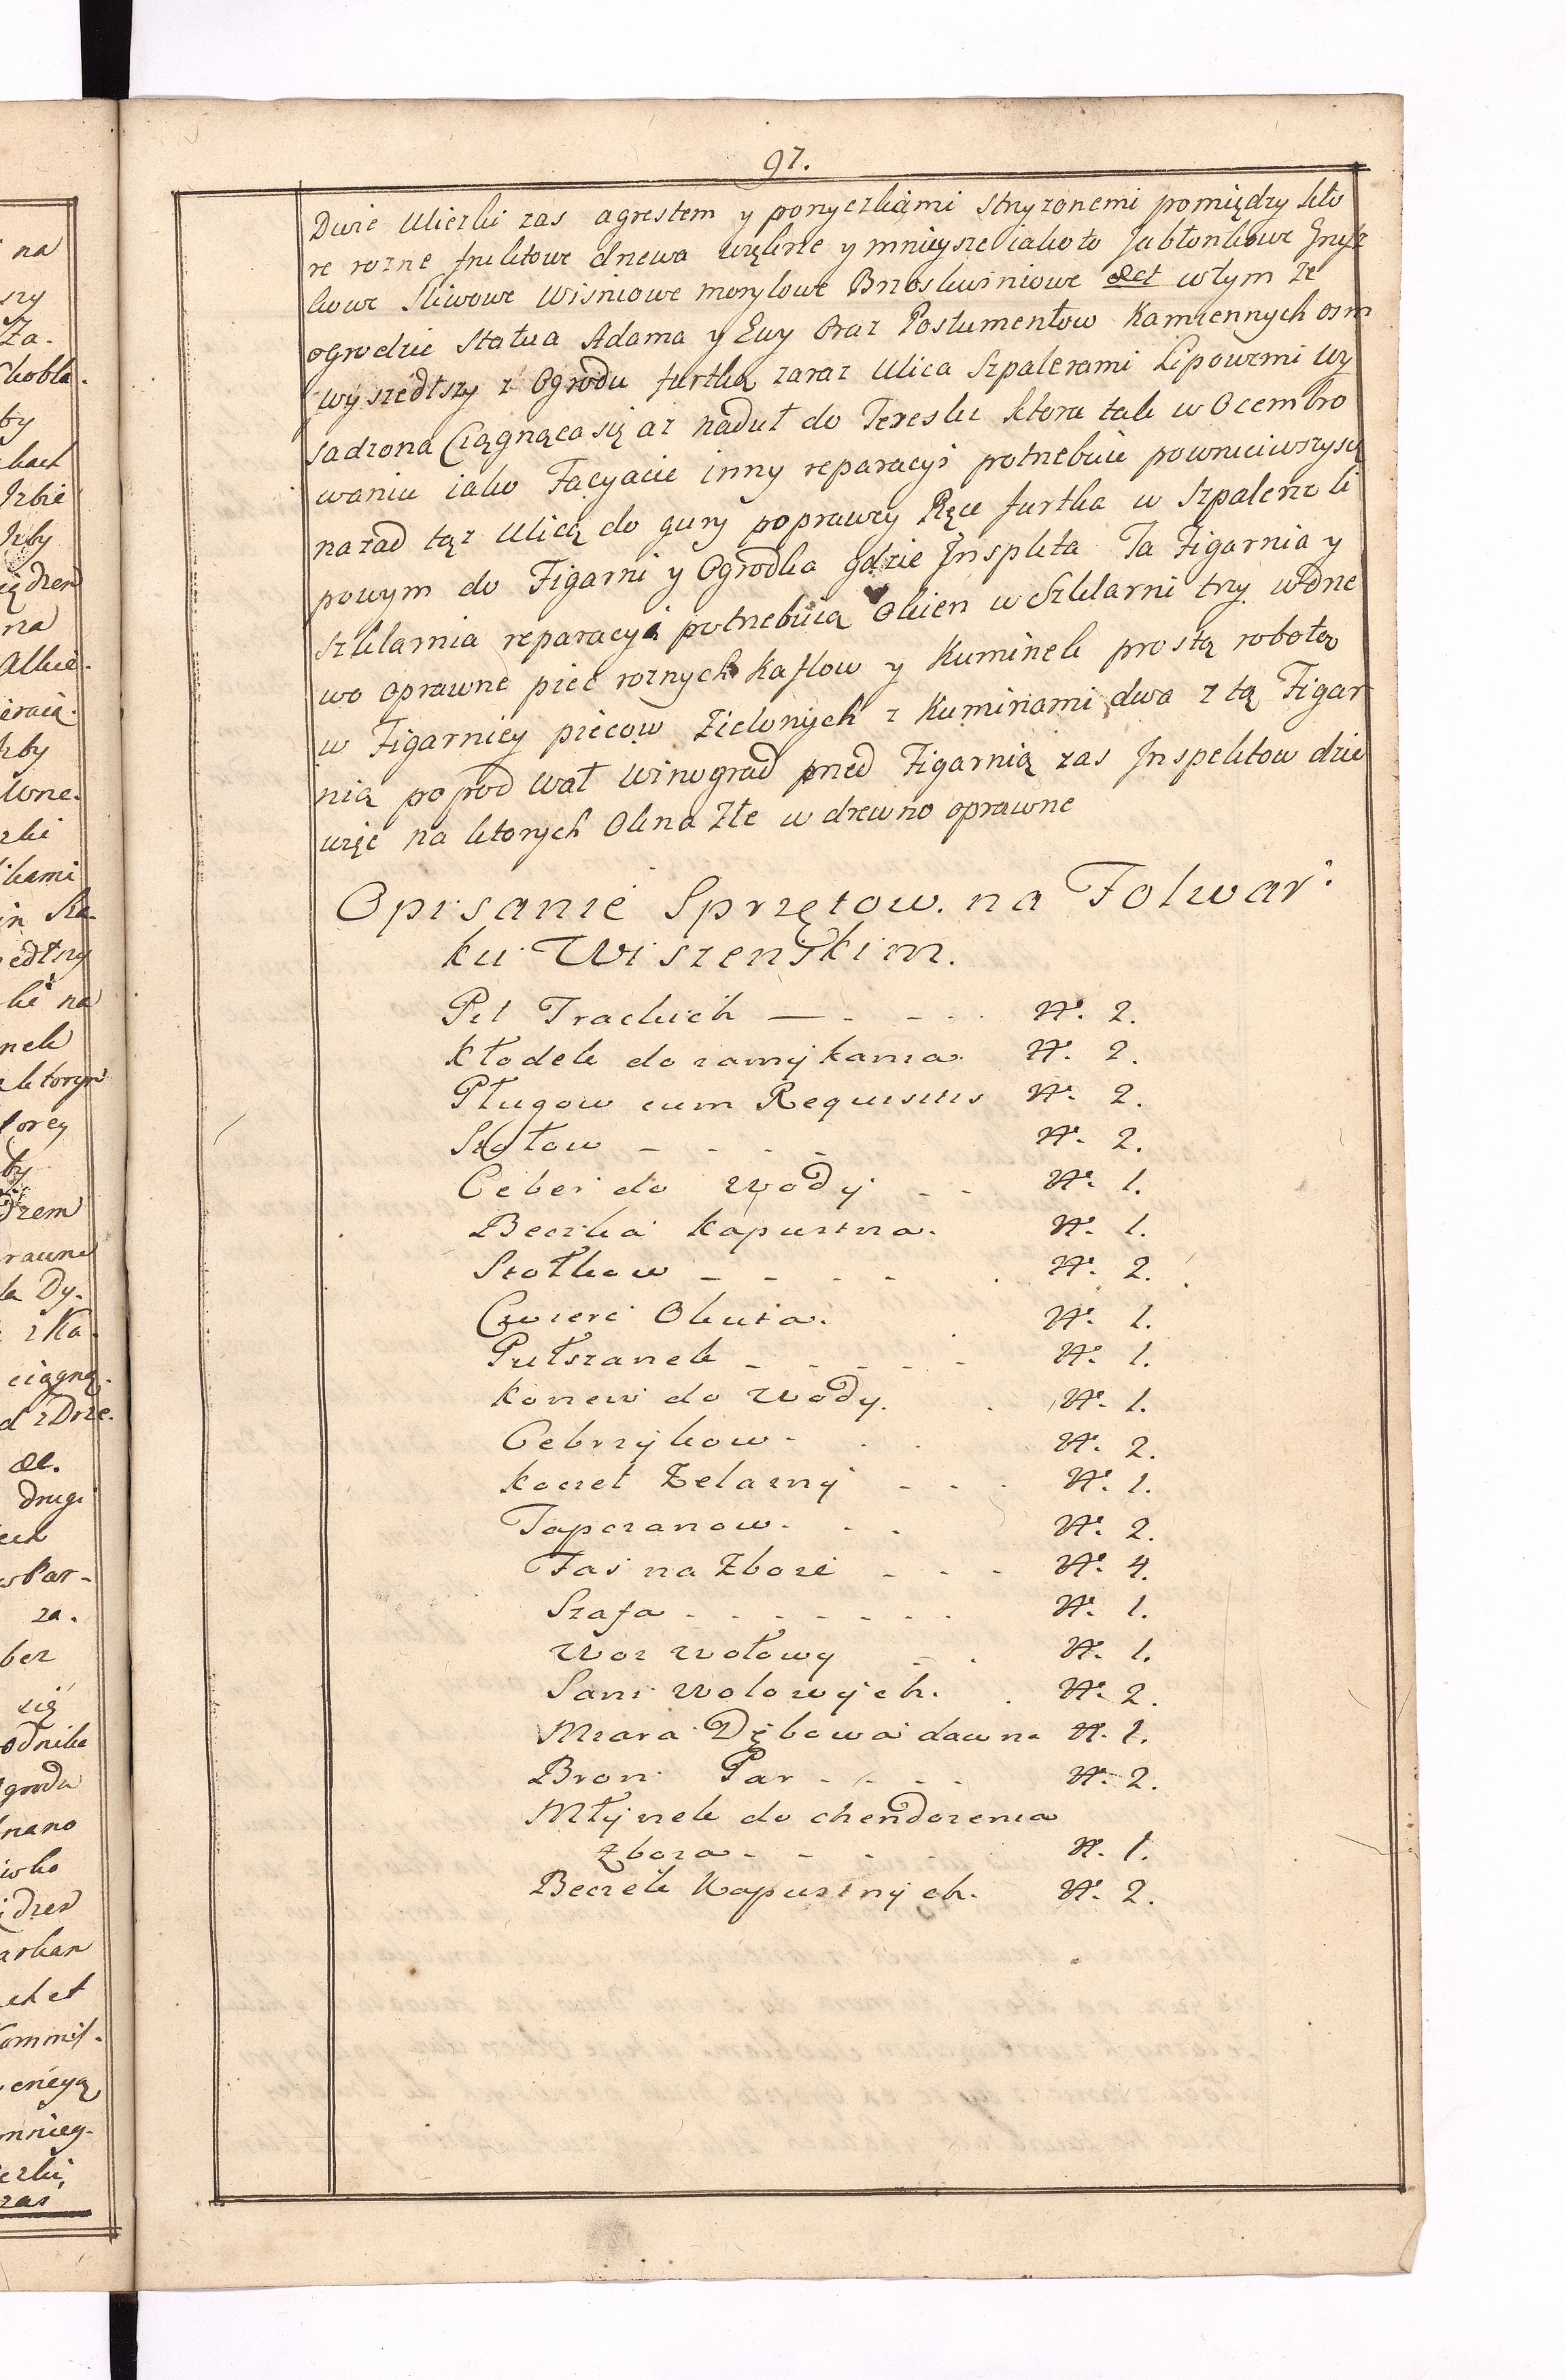 97.
Dwie Uliczki zas agrestem y ponyczkiami stryzonemi pomiędzy kto
re rozne fruktowe drzewa większe y mnieysze iako to Jabłonkowe Grusz
kowe Sliwowe Wisniowe morylowe Brzoskwiniowe &ct w tym ze
ogrodzie Statua Adama y Ewy Oraz Postumentow Kamiennych osm
wyszedłszy z Ogrodu furtką zaraz Ulica Szpalerami Lipowemi wy
sadzona Ciągnąca się az na duł do Tereski ktora tak w Ocembro
waniu iako Facyacie inny reparacyi potrzebuie powruciwszysię
nazad tąz Ulicą do gury po prawey Ręce furtka w Szpalerze li
powym do Figarni y Ogrodka gdzie Inspkta Ta Figarnia y
szklarnia reparacyi potrzebuią Okien w Szklarni trzy w drze
wo oprawne piec roznych Kaflow y Kuminek prostą robotą
w Figarniey piecow Zielonych z Kuminami dwa z tą Figar
nią popod wał winograd przed Figarnią zas Inspektow dzie
więc na ktorych Okna Złe w drzewno oprawne
Opisanie Sprzętow na Folwar
ku Wiszenskim.
Pił Trackich — - - - N. 2.
Kłodek do zamykania N. 2.
Pługow cum Requisitis N. 2.
Stołow - - - - - N. 2.
Ceber do wody - - N. 1.
Beczka Kapustna. N. 1.
Stołkow - - - - - N. 2.
Cwierc Okuta. N. 1.
Pułszanek - - - - - N. 1.
Konew do wody. N. 1.
Cebrzykow - . . N. 2.
Kocieł Zelazny - - - N. 1.
Tapczanow. . . N. 2.
Fas na Zboze - - - N. 4.
Szafa - - - - - - - N. 1.
Woz wołowy - . N. 1.
Sani Wolowych. . N. 2.
Miara Dębowa dawna N. 1.
Bron Par - - - - N. 2.
Młynek do chendozenia
Zboza - - - - - N. 1.
Beczek Kapustnych. N. 2.